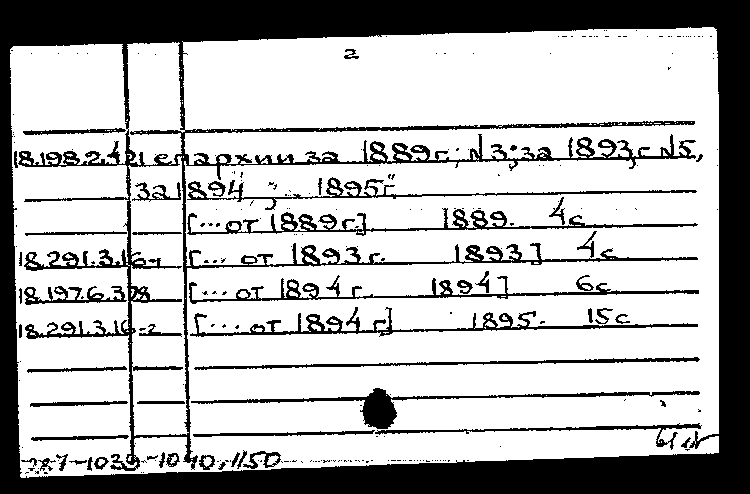 2
18.198.2.421 епархии за 1889г; №3; за 1893г №5,
за 1894, 1895г."
[... от 1889г.] 1889. 4с
18.291.3.16-1 [... от 1893г. 1893] 4с
18.197.6.398 [... от 1894г. 1894] 6с
18.291.3.16-2 [... от 1894г] 1895. 15с
287-1039-1040, 1150